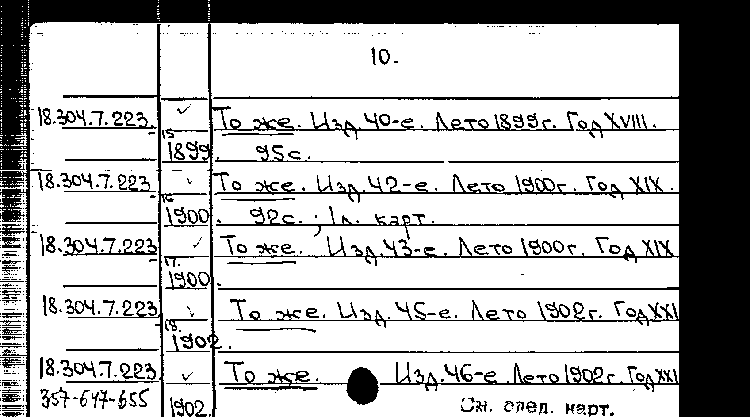 10.
18.304.7.223. ✓ То же. Изд. 40-е. Лето 1899г. Год XVIII.
15
1899. 95с.
18.304.7.223 То же. Изд. 42-е. Лето 1900г. Год XIX.
16
1900. 92с.; 1л. карт.
18.304.7.223 ✓ То же. Изд. 43-е. Лето 1900г. Год XIX
17.
1900.
18.304.7.223 То же. Изд. 45-е. Лето 1902г. Год XXI
18.
1902.
18.304.7.223 ✓ То же. Изд. 46-е. Лето 1902г. Год XXI
357-647-655
1902. См. след. карт.